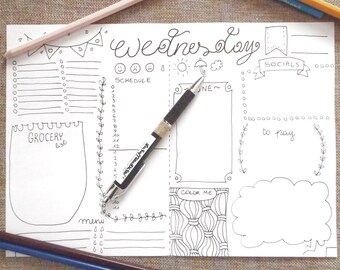 wednesday
SCHEDULE
SOCIALS
GROCERY
list
to pay
menu
COLOR ME